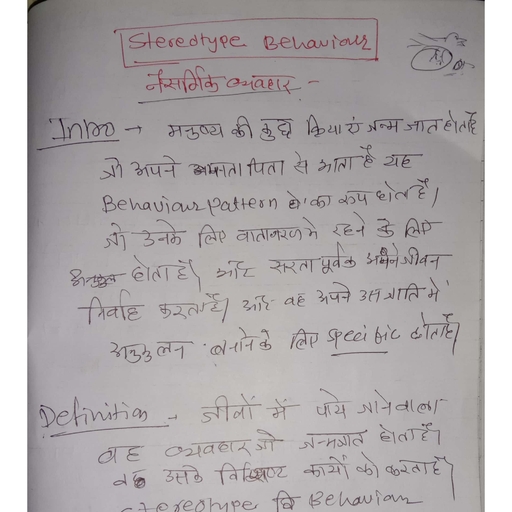 Stereotype Behaviour
नैसर्गिक व्यवहार -
Intro → मनुष्य की कुछ क्रियाएं जन्म जात होता है
जो अपने माता पिता से आता है यह
Behaviour pattern का रूप होता है।
जो उनके लिए वातावरण में रहने के लिए
होता है। और सरता पूर्वक अपने जीवन
निर्वाह करता है। और वह अपने उस जाति में
अनुकुलन बनाने के लिए specific होता है।
Definition → जीवों में पाये जाने वाला
वह व्यवहार जो जन्मजात होता है।
उसके विशिष्ट कार्यो को करता है।
stereotype Behaviour